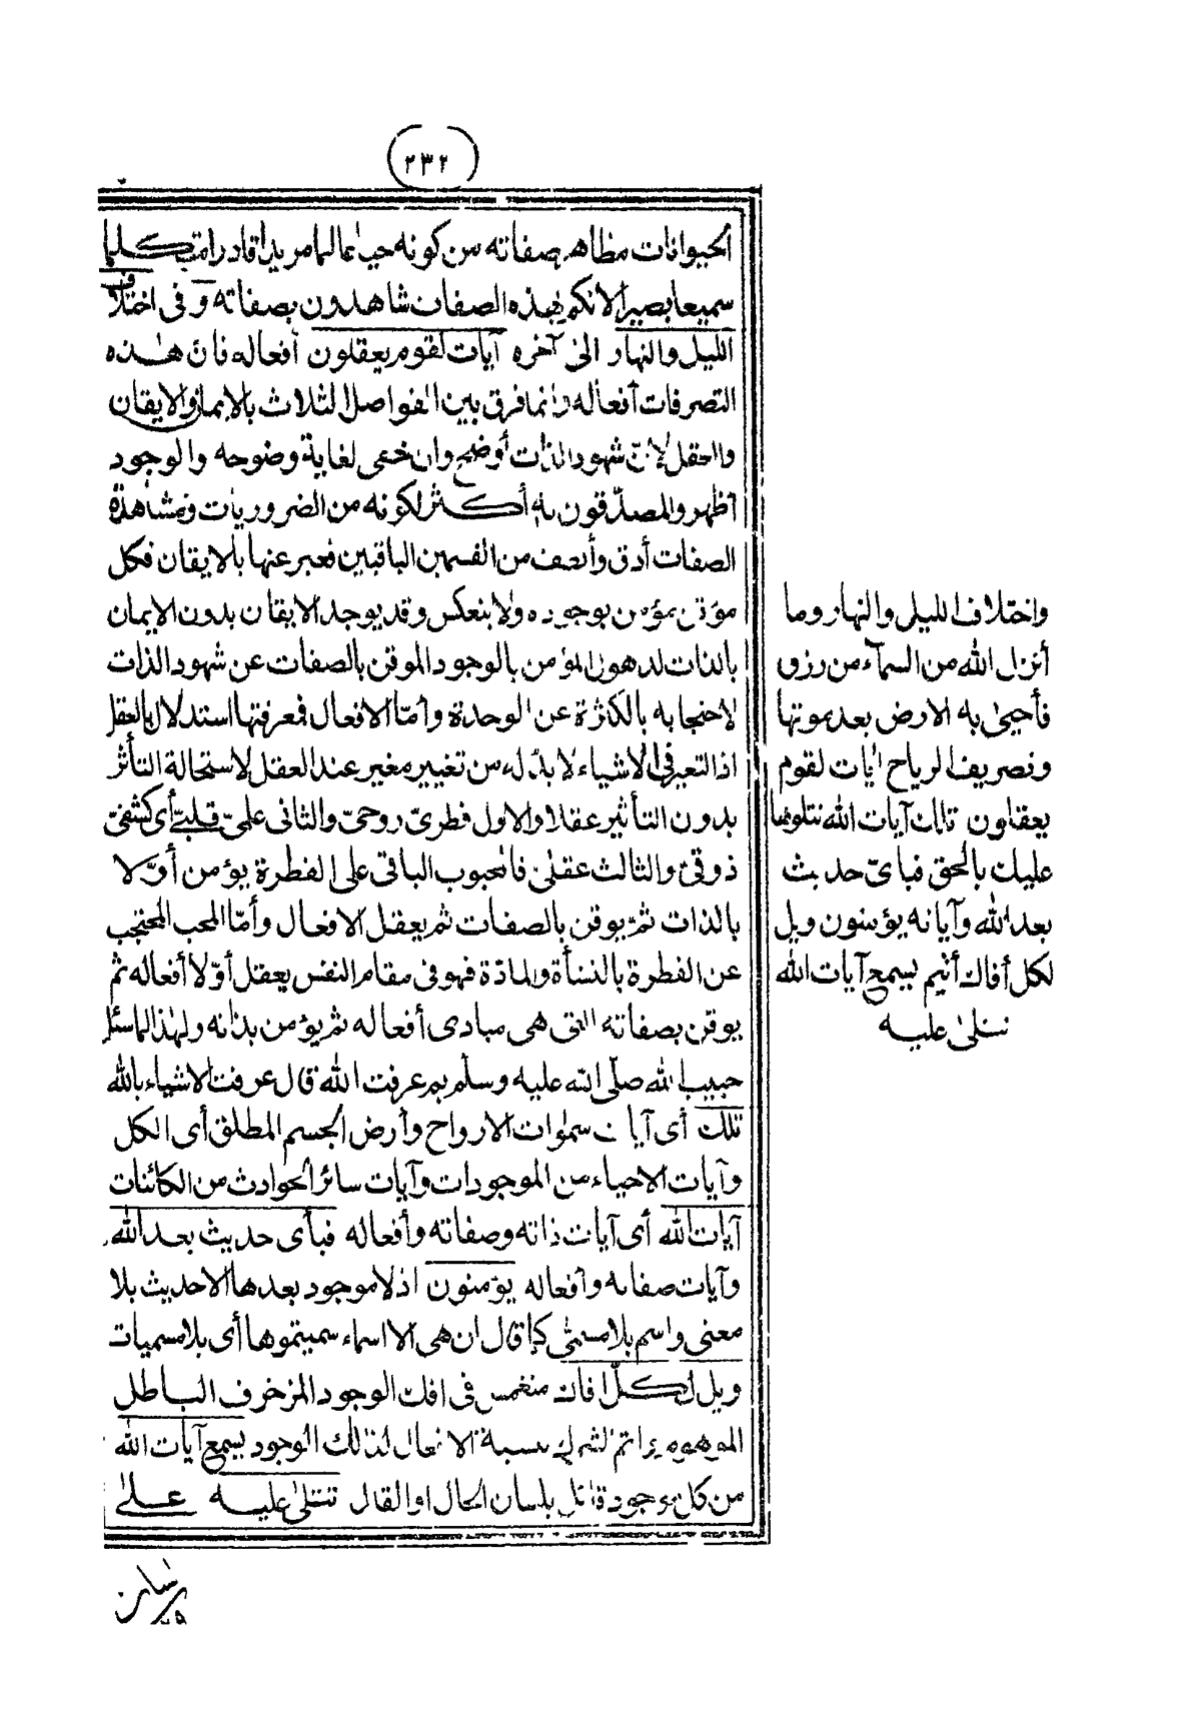 (٢٣٢)
الحيوانات مظاهر صفاته من كونه حيا عالما مريدا قادرا متكلما
سميعا بصيرا لانكم بهذه الصفات شاهدون بصفاته وفى اختلاف
الليل والنهار الى آخره آيات لقوم يعقلون أفعاله فان هذه
التصرفات أفعاله وانما فرق بين الفواصل الثلاث بالايمان والايقان
والعقل لانّ شهود الذات أوضح وان خفى لغاية وضوحه والوجود
أظهر والمصدّقون به أكثر لكونه من الضروريات ومشاهدة
الصفات أدق وألطف من القسمين الباقيين فعبر عنها بالايقان فكل
موقن مؤمن بوجوده ولا ينعكس وقد يوجد الايقان بدون الايمان
بالذات لذهول المؤمن بالوجود الموقن بالصفات عن شهود الذات
لاحتجابه بالكثرة عن الوحدة وأمّا الافعال فمعرفتها استدلال بالعقل
اذ التغير فى الاشياء لا بدّ له من تغيير مغير عند العقل لاستحالة التأثر
بدون التأثير عقلا والاول فطرىّ روحىّ والثانى علمىّ قلبىّ أى كشفىّ
ذوقىّ والثالث عقلىّ فالمحبوب الباقى على الفطرة يؤمن أوّلا
بالذات ثمّ يوقن بالصفات ثم يعقل الافعال وأمّا المحب المحتجب
عن الفطرة بالنشأة والمادّة فهو فى مقام النفس يعقل أوّلا أفعاله ثم
يوقن بصفاته التى هى مبادى أفعاله ثم يؤمن بذاته ولهذا لما سئل
حبيب الله صلّى الله عليه وسلم بم عرفت الله قال عرفت الاشياء بالله
تلك أى آيات سموات الارواح وأرض الجسم المطلق أى الكل
وآيات الاحياء من الموجودات وآيات سائر الحوادث من الكائنات
آيات الله أى آيات ذاته وصفاته وأفعاله فبأى حديث بعد الله
وآيات صفاته وأفعاله يؤمنون اذ لا موجود بعدها الا حديث بلا
معنى واسم بلا مسمّى كما قال ان هى الا اسماء سميتموها أى بلا مسميات
ويل لكلّ افاك منغمس فى افك الوجود المزخرف الباطل
الموهوم أثيم لشرك بنسبة الافعال لذلك الوجود يسمع آيات الله
من كل موجود قائل بلسان الحال او القال تتلى عليه على
واختلاف الليل والنهار وما
أنزل الله من السمآء من رزق
فأحيى به الارض بعد موتها
وتصريف الرياح ايات لقوم
يعقلون تلك آيات الله نتلوها
عليك بالحق فبأىّ حديث
بعد الله وآياته يؤمنون ويل
لكل أفاك أثيم يسمع آيات الله
تتلى عليه